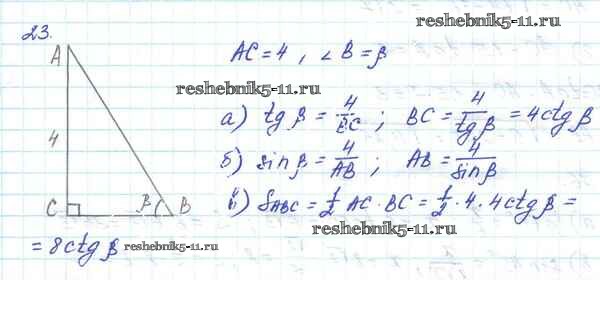 23.
reshebnik5-11.ru
A
AC = 4, ∠B = β
reshebnik5-11.ru
4
а) tg β = 4/BC ; BC = 4/tg β = 4ctg β
б) sin β = 4/AB ; AB = 4/sin β
C β B
в) S_ABC = 1/2 AC · BC = 1/2 · 4 · 4ctg β =
reshebnik5-11.ru
= 8ctg β reshebnik5-11.ru